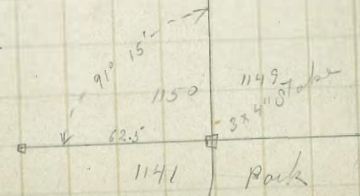 91° 15'
1150
1149
3 x 4" Stake
62.5
1141
Park